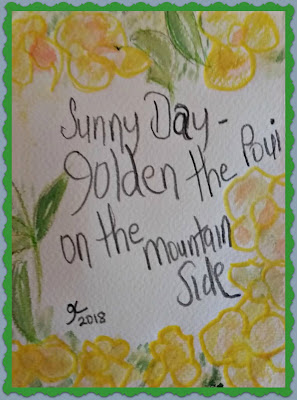 Sunny Day -
golden the Poui
on the mountain
side
2018